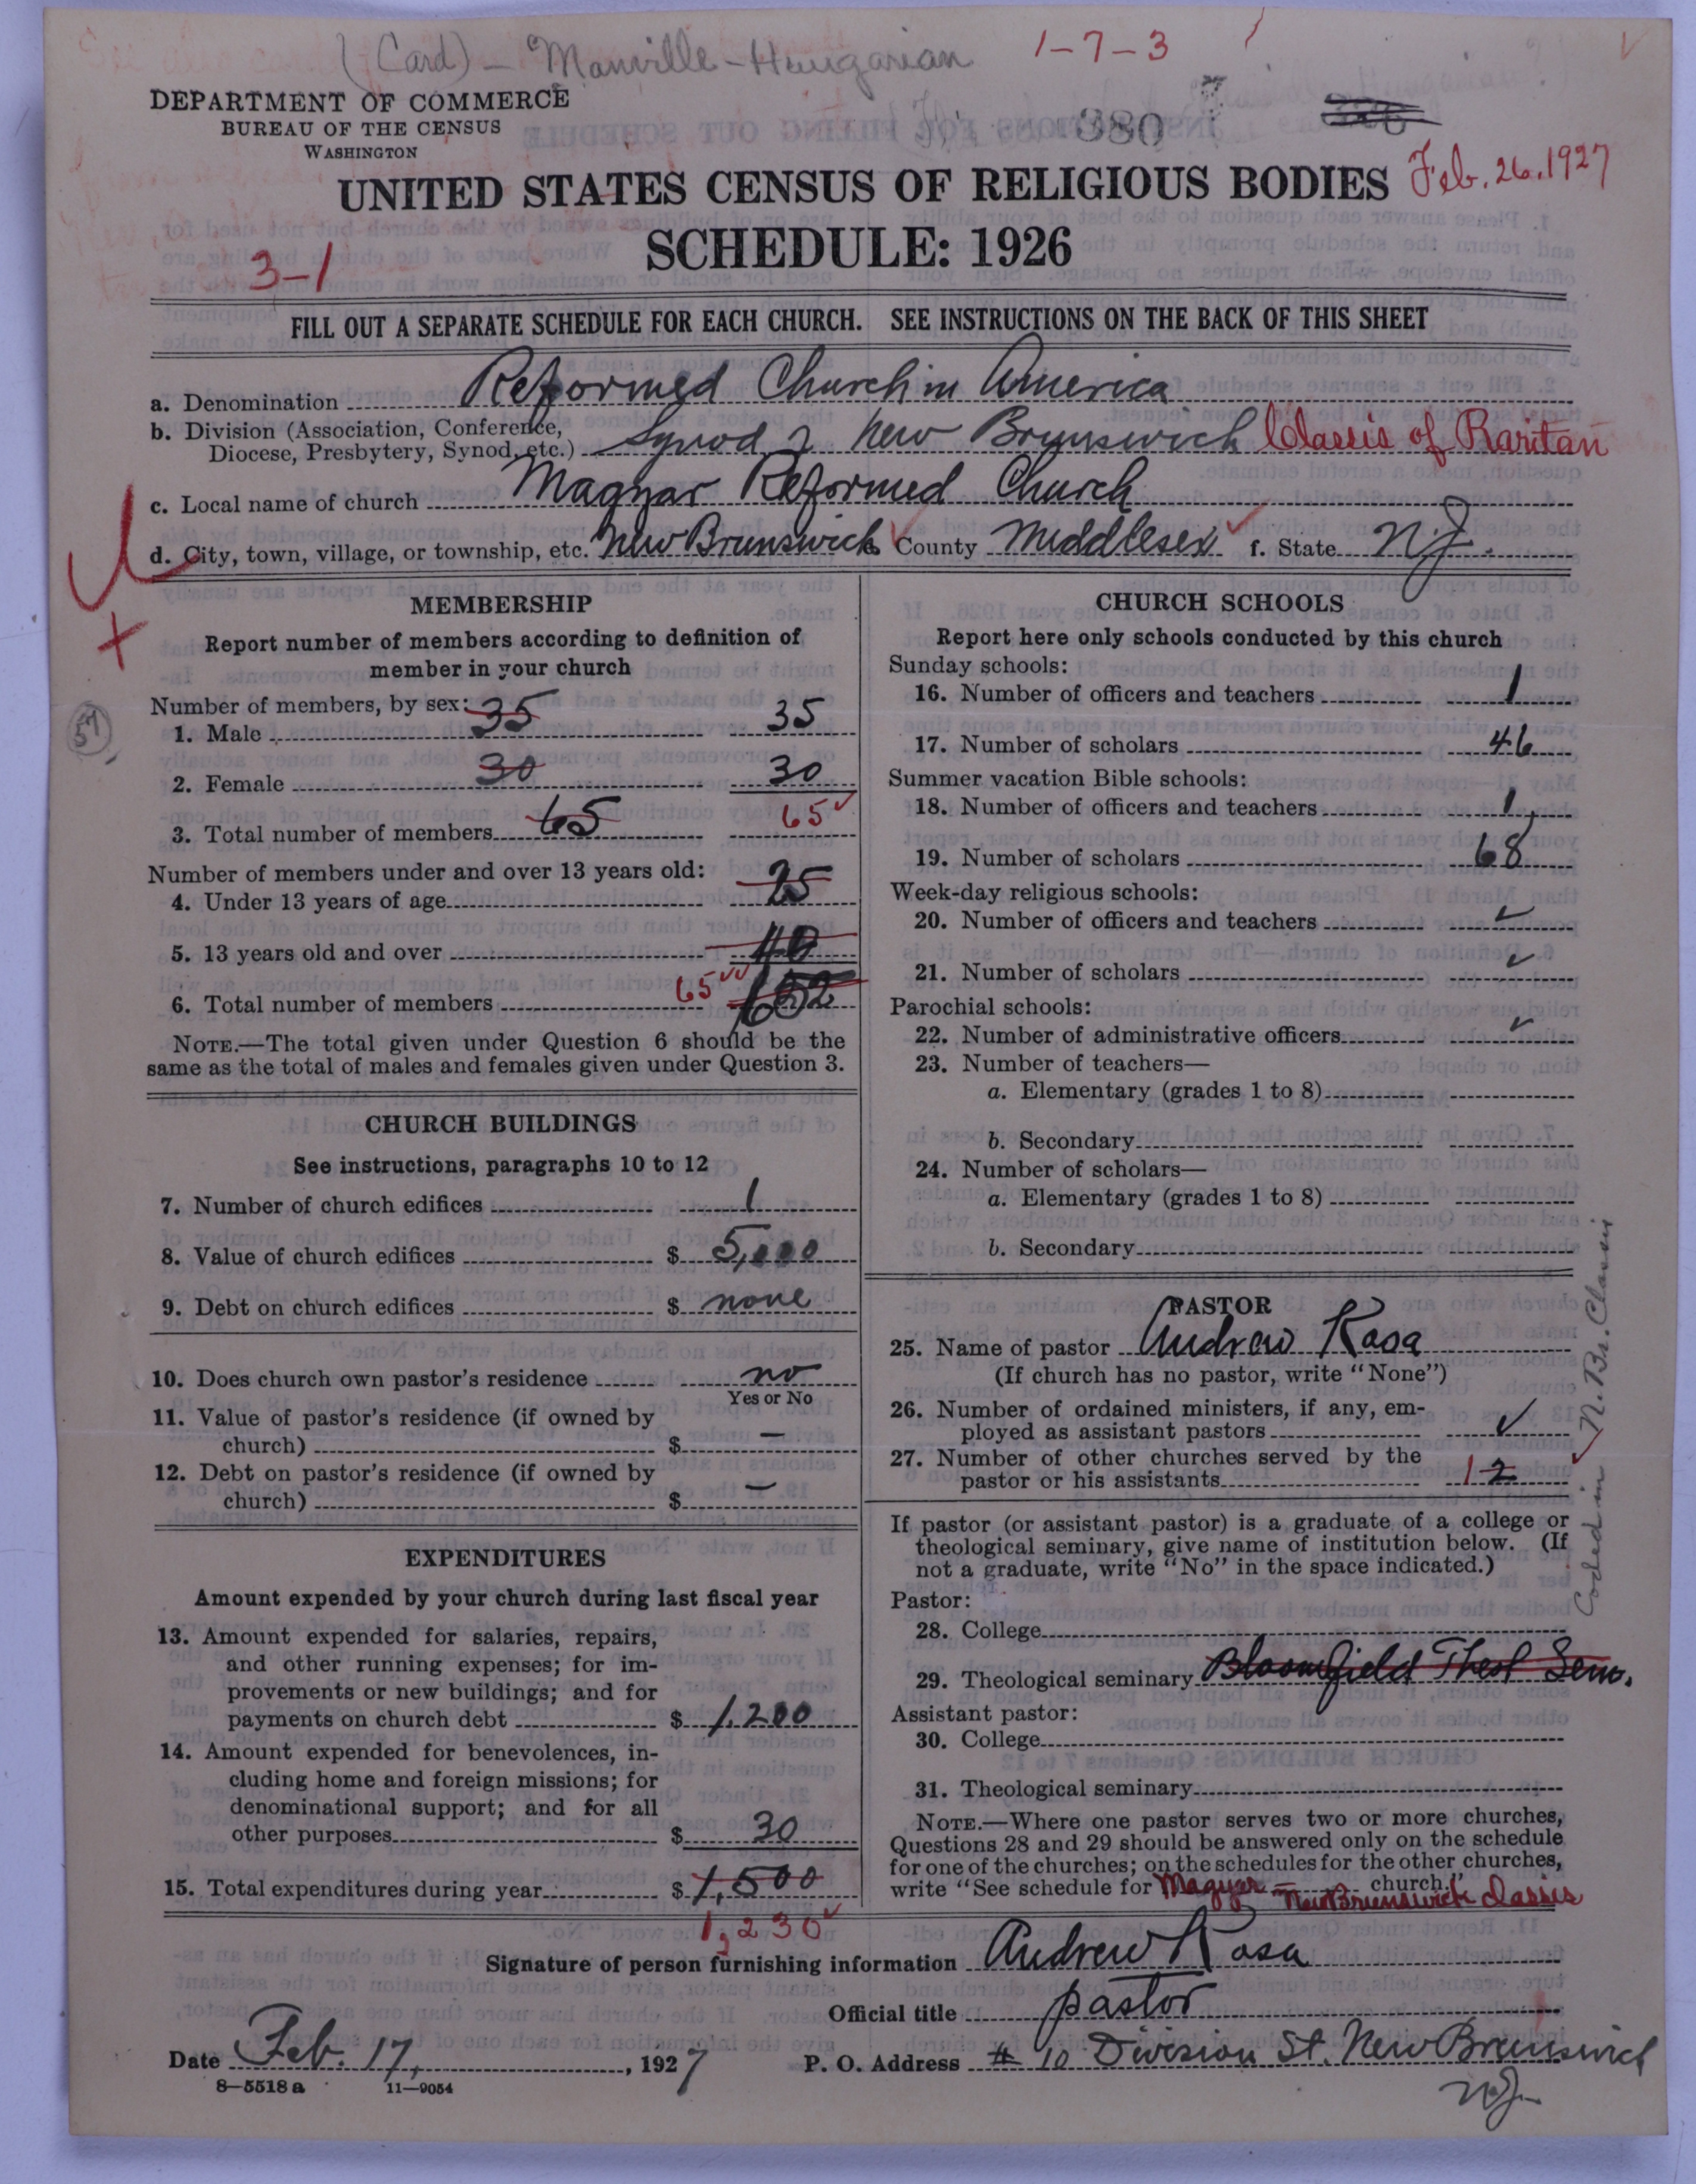 (Card) - Manville - Hungarian 1-7-3
DEPARTMENT OF COMMERCE
BUREAU OF THE CENSUS
WASHINGTON
380
Feb. 26, 1927
UNITED STATES CENSUS OF RELIGIOUS BODIES
SCHEDULE: 1926
3-1
FILL OUT A SEPARATE SCHEDULE FOR EACH CHURCH. SEE INSTRUCTIONS ON THE BACK OF THIS SHEET
a. Denomination Reformed Church in America
b. Division (Association, Conference,
Diocese, Presbytery, Synod, etc.) Synod of New Brunswick Classis of Raritan
c. Local name of church Magyar Reformed Church
d. City, town, village, or township, etc. New Brunswick County Middlesex f. State N.J.
MEMBERSHIP
Report number of members according to definition of
member in your church
Number of members, by sex:
1. Male 35 35
2. Female 30 30
3. Total number of members 65 65
Number of members under and over 13 years old:
4. Under 13 years of age 25
5. 13 years old and over 40
6. Total number of members 65
NOTE.—The total given under Question 6 should be the
same as the total of males and females given under Question 3.
CHURCH BUILDINGS
See instructions, paragraphs 10 to 12
7. Number of church edifices 1
8. Value of church edifices $ 5,000
9. Debt on church edifices $ none
10. Does church own pastor's residence no
Yes or No
11. Value of pastor's residence (if owned by
church) $ —
12. Debt on pastor's residence (if owned by
church) $ —
EXPENDITURES
Amount expended by your church during last fiscal year
13. Amount expended for salaries, repairs,
and other running expenses; for im-
provements or new buildings; and for
payments on church debt $ 1,200
14. Amount expended for benevolences, in-
cluding home and foreign missions; for
denominational support; and for all
other purposes $ 30
15. Total expenditures during year $ 1,500
1,230
CHURCH SCHOOLS
Report here only schools conducted by this church
Sunday schools:
16. Number of officers and teachers 1
17. Number of scholars 46
Summer vacation Bible schools:
18. Number of officers and teachers 1
19. Number of scholars 68
Week-day religious schools:
20. Number of officers and teachers
21. Number of scholars
Parochial schools:
22. Number of administrative officers
23. Number of teachers—
a. Elementary (grades 1 to 8)
b. Secondary
24. Number of scholars—
a. Elementary (grades 1 to 8)
b. Secondary
PASTOR
25. Name of pastor Andrew Kosa
(If church has no pastor, write "None")
26. Number of ordained ministers, if any, em-
ployed as assistant pastors
27. Number of other churches served by the
pastor or his assistants 1 2
Coded in N. Br. Classis
If pastor (or assistant pastor) is a graduate of a college or
theological seminary, give name of institution below. (If
not a graduate, write "No" in the space indicated.)
Pastor:
28. College
29. Theological seminary Bloomfield Theol Sem.
Assistant pastor:
30. College
31. Theological seminary
NOTE.—Where one pastor serves two or more churches,
Questions 28 and 29 should be answered only on the schedule
for one of the churches; on the schedules for the other churches,
write "See schedule for Magyar — church."
New Brunswick classis
Signature of person furnishing information Andrew Kosa
Official title pastor
Date Feb. 17, 1927 P. O. Address # 10 Division St. New Brunswick
N.J.
8-5518 a 11-9054